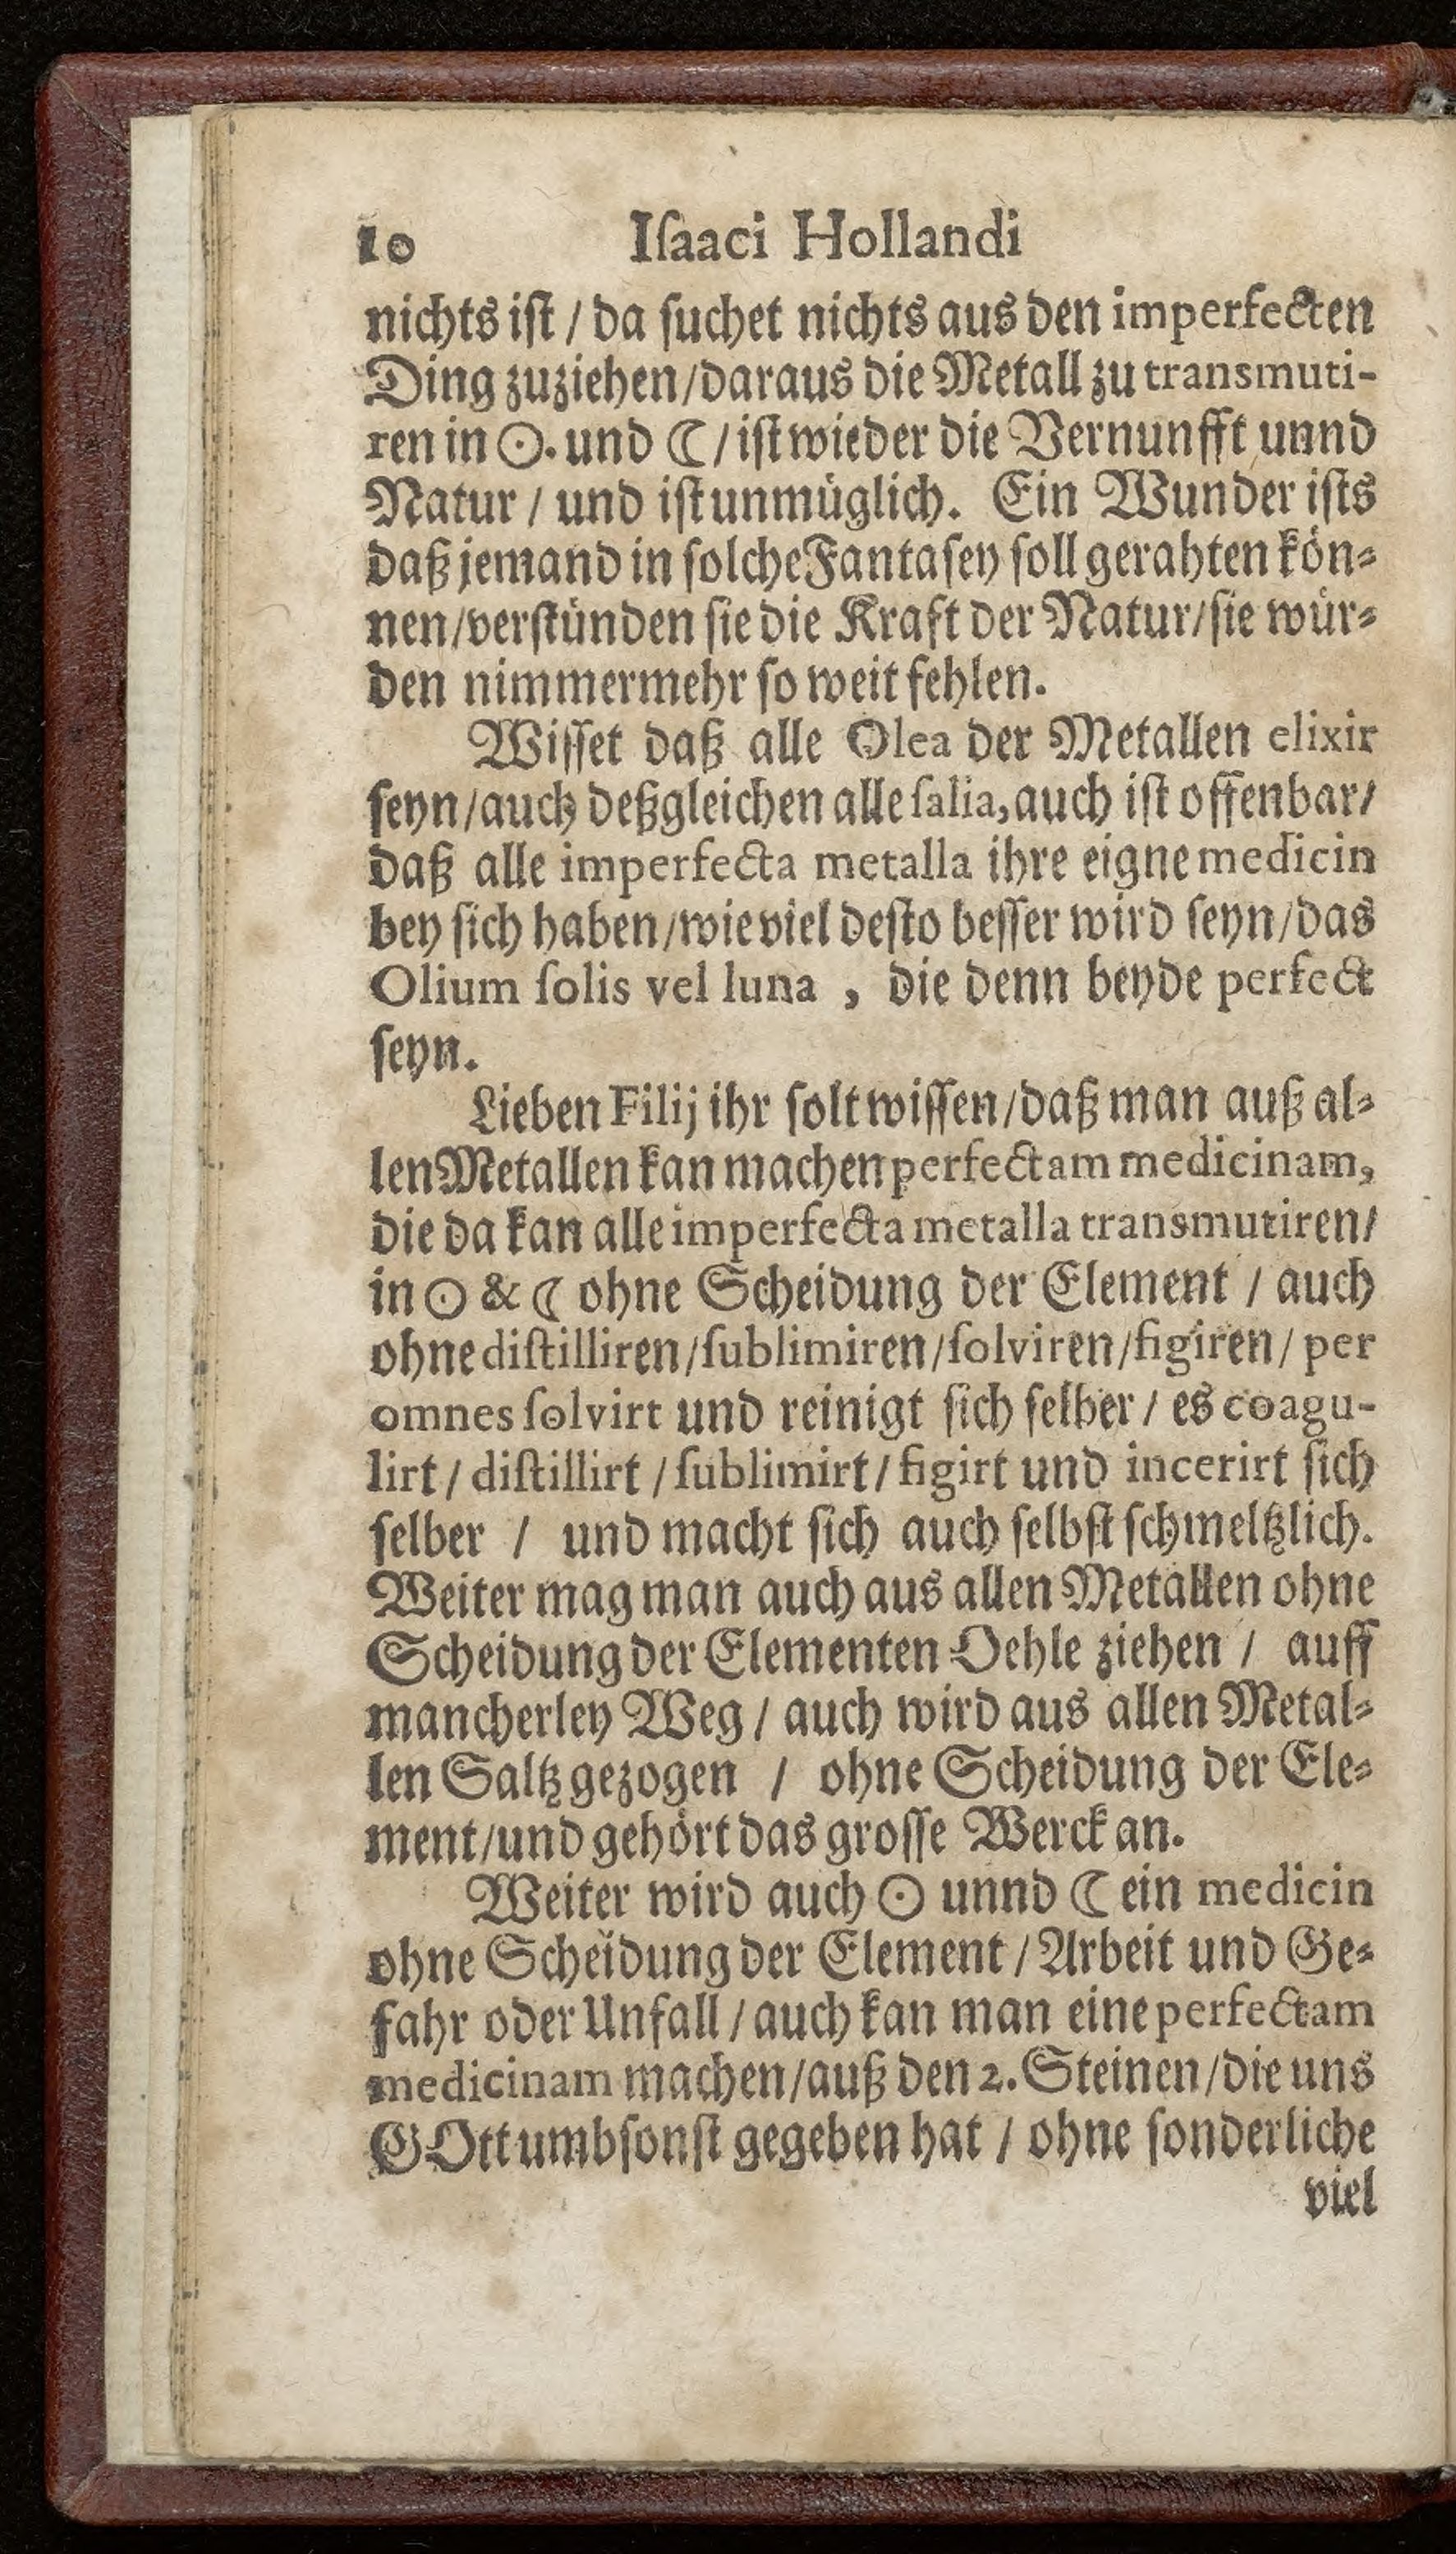 10 Iſaaci Hollandi
nichts iſt / da ſuchet nichts aus den imperfecten
Ding zuziehen / daraus die Metall zu transmuti-
ren in ☉. und ☾ / iſt wieder die Vernunfft unnd
Natur / und iſt unmüglich. Ein Wunder iſts
daß jemand in ſolche Fantaſey ſoll gerahten kön-
nen / verſtünden ſie die Kraft der Natur / ſie wür-
den nimmermehr ſo weit fehlen.
Wiſſet daß alle Olea der Metallen elixir
ſeyn / auch deßgleichen alle ſalia, auch iſt offenbar /
daß alle imperfecta metalla ihre eigne medicin
bey ſich haben / wie viel deſto beſſer wird ſeyn / das
Olium ſolis vel luna , die denn beyde perfect
ſeyn.
Lieben Filij ihr ſolt wiſſen / daß man auß al-
len Metallen kan machen perfectam medicinam,
die da kan alle imperfecta metalla transmutiren /
in ☉ & ☾ ohne Scheidung der Element / auch
ohne diſtilliren / ſublimiren / ſolviren / figiren / per
omnes ſolvirt und reinigt ſich ſelber / es coagu-
lirt / diſtillirt / ſublimirt / figirt und incerirt ſich
ſelber / und macht ſich auch ſelbſt ſchmeltzlich.
Weiter mag man auch aus allen Metallen ohne
Scheidung der Elementen Oehle ziehen / auff
mancherley Weg / auch wird aus allen Metal-
len Saltz gezogen / ohne Scheidung der Ele-
ment / und gehört das groſſe Werck an.
Weiter wird auch ☉ unnd ☾ ein medicin
ohne Scheidung der Element / Arbeit und Ge-
fahr oder Unfall / auch kan man eine perfectam
medicinam machen / auß den 2. Steinen / die uns
GOtt umbſonſt gegeben hat / ohne ſonderliche
viel